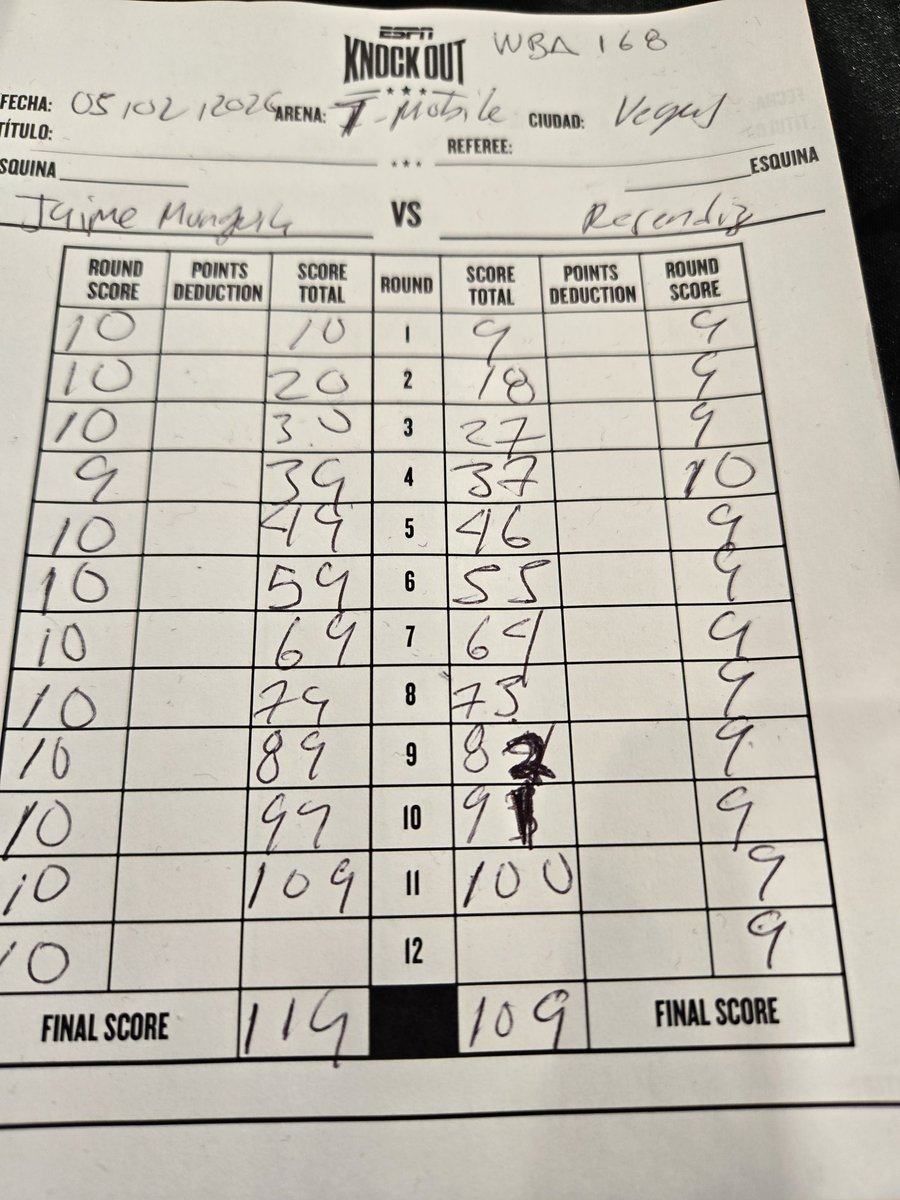 ESPN WBA 168
KNOCKOUT
FECHA: 05/02/2026 ARENA: T-Mobile CIUDAD: Vegas
TÍTULO: REFEREE:
SQUINA ESQUINA
Jaime Munguia VS Resendiz
ROUND SCORE POINTS DEDUCTION SCORE TOTAL ROUND SCORE TOTAL POINTS DEDUCTION ROUND SCORE
10 10 1 9 9
10 20 2 18 9
10 30 3 27 9
9 39 4 37 10
10 49 5 46 9
10 59 6 55 9
10 69 7 64 9
10 79 8 73 9
10 89 9 82 9
10 99 10 91 9
10 109 11 100 9
10 12 9
FINAL SCORE 119 109 FINAL SCORE